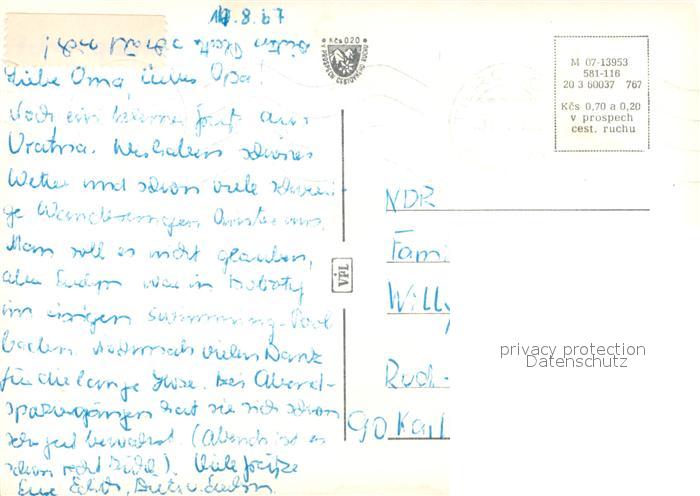 14.8.67
Liebe Oma, lieber Opa!
Noch ein kleiner Gruß aus
Vratna. Wir haben schönes
Wetter und schon viele schwieri-
ge Wanderungen hinter uns.
Man soll es nicht glauben,
aber Evelyn war in
im eisigen Swimming-Pool
baden. Nochmals vielen Dank
für die lange Hose. Bei Abend-
spaziergängen hat sie sich schon
sehr gut bewährt (Abends ist es
schon recht kühl). Viele Grüße
Eure Edith, Dieter u. Evelyn
Kčs 0,20
V PROSPĚCH CESTOVNÍHO RUCHU
M 07-13953
581-116
20 3 60037 767
Kčs 0,70 a 0,20
v prospech
cest. ruchu
VPL
NDR
Fami
Willy
Rud-
90 Karl
privacy protection
Datenschutz